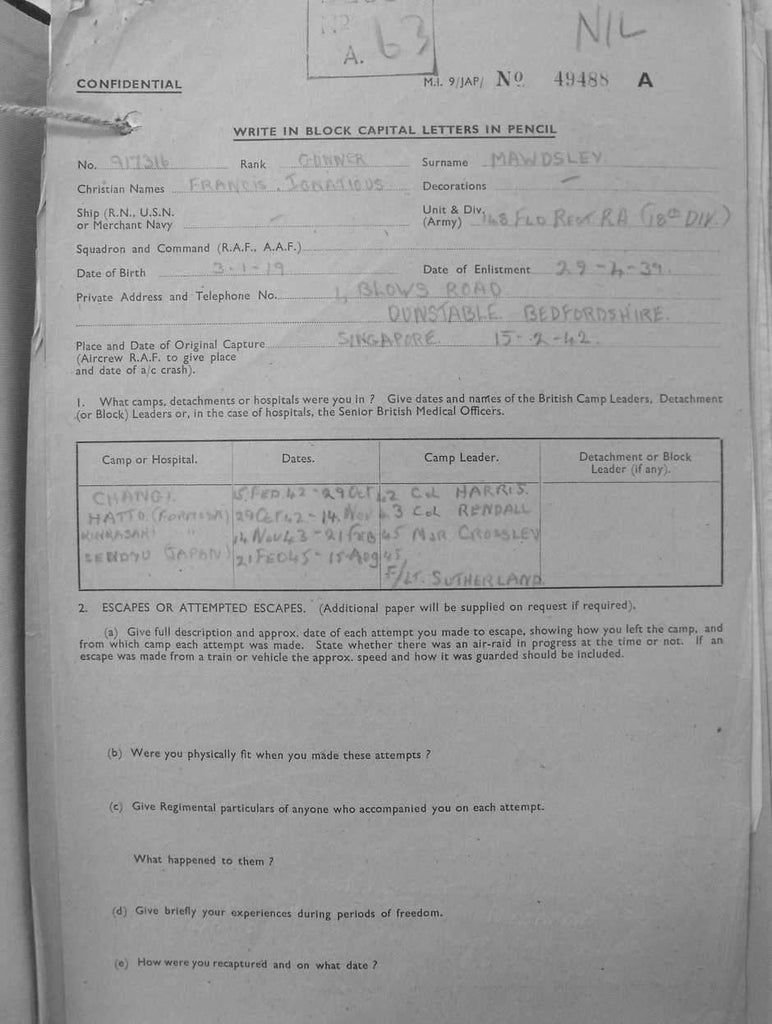 A. 63
NIL
CONFIDENTIAL
M.I. 9/JAP/ No 49488 A
WRITE IN BLOCK CAPITAL LETTERS IN PENCIL
No. 917316 Rank GUNNER Surname MAWDSLEY
Christian Names FRANCIS. IGNATIOUS Decorations –
Ship (R.N., U.S.N. or Merchant Navy –
Unit & Div. (Army) 148 FLD REGT RA (18th DIV.)
Squadron and Command (R.A.F., A.A.F.)
Date of Birth 3-1-19 Date of Enlistment 29-4-39.
Private Address and Telephone No. 1, BLOWS ROAD
DUNSTABLE. BEDFORDSHIRE.
Place and Date of Original Capture SINGAPORE. 15-2-42.
(Aircrew R.A.F. to give place
and date of a/c crash).
1. What camps, detachments or hospitals were you in ? Give dates and names of the British Camp Leaders, Detachment
(or Block) Leaders or, in the case of hospitals, the Senior British Medical Officers.
Camp or Hospital. Dates. Camp Leader. Detachment or Block
Leader (if any).
CHANGI. 15 FEB.42 - 29 OCT 42 COL HARRIS.
HATTO. (FORMOSA) 29 OCT 42 - 14 NOV 43 COL RENDALL
KINKASAKI " 14 NOV 43 - 21 FEB 45 MJR CROSSLEY
SENDYU JAPAN) 21 FEB 45 - 15 Aug 45,
F/LT. SUTHERLAND.
2. ESCAPES OR ATTEMPTED ESCAPES. (Additional paper will be supplied on request if required).
(a) Give full description and approx. date of each attempt you made to escape, showing how you left the camp, and
from which camp each attempt was made. State whether there was an air-raid in progress at the time or not. If an
escape was made from a train or vehicle the approx. speed and how it was guarded should be included.
(b) Were you physically fit when you made these attempts ?
(c) Give Regimental particulars of anyone who accompanied you on each attempt.
What happened to them ?
(d) Give briefly your experiences during periods of freedom.
(e) How were you recaptured and on what date ?